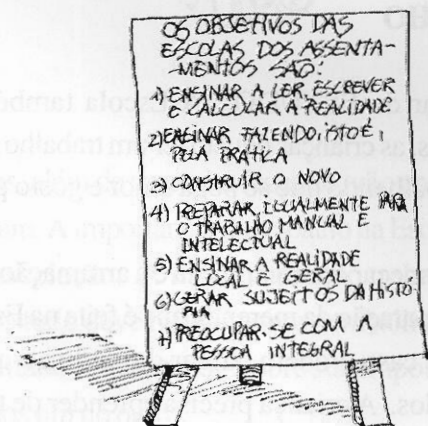 OS OBJETIVOS DAS
ESCOLAS DOS ASSENTA-
MENTOS SÃO:
1) ENSINAR A LER, ESCREVER
E CALCULAR A REALIDADE
2) ENSINAR FAZENDO, ISTO É,
PELA PRÁTICA
3) CONSTRUIR O NOVO
4) PREPARAR IGUALMENTE PARA
O TRABALHO MANUAL E
INTELECTUAL
5) ENSINAR A REALIDADE
LOCAL E GERAL
6) GERAR SUJEITOS DA HISTÓ
RIA
7) PREOCUPAR-SE COM A
PESSOA INTEGRAL